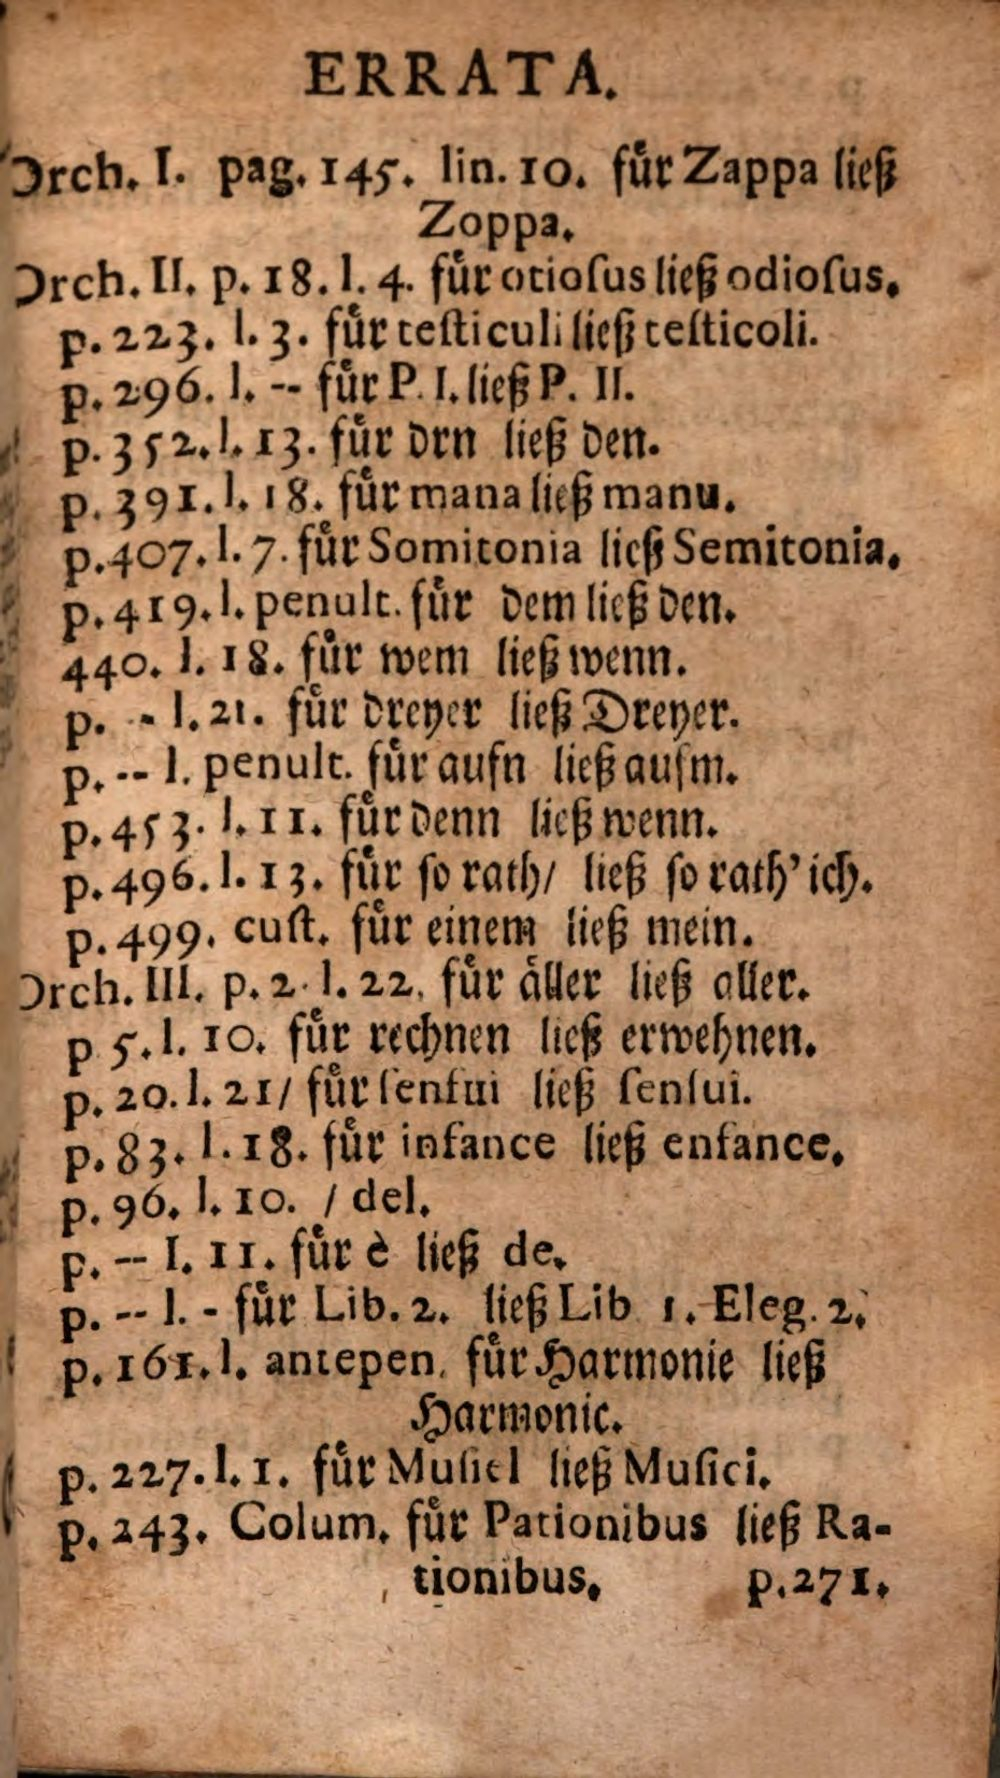 ERRATA.
Orch. I. pag. 145. lin. 10. fůr Zappa ließ
Zoppa.
Orch. II. p. 18. l. 4. fůr otioſus ließ odioſus.
p. 223. l. 3. fůr teſticuli ließ teſticoli.
p. 296. l. -- fůr P. I. ließ P. II.
p. 352. l. 13. fůr drn ließ den.
p. 391. l. 18. fůr mana ließ manu.
p. 407. l. 7. fůr Somitonia ließ Semitonia.
p. 419. l. penult. fůr dem ließ den.
440. l. 18. fůr wem ließ wenn.
p. - l. 21. fůr dreyer ließ Dreyer.
p. -- l. penult. fůr aufn ließ aufm.
p. 453. l. 11. fůr denn ließ wenn.
p. 496. l. 13. fůr ſo rath/ ließ ſo rath' ich.
p. 499. cuſt. fůr einem ließ mein.
Orch. III. p. 2. l. 22. fůr åller ließ aller.
p 5. l. 10. fůr rechnen ließ erwehnen.
p. 20. l. 21/ fůr ſenſui ließ ſenſui.
p. 83. l. 18. fůr infance ließ enfance.
p. 96. l. 10. / del.
p. -- l. 11. fůr è ließ de.
p. -- l. - fůr Lib. 2. ließ Lib 1. Eleg. 2.
p. 161. l. antepen. fůr Harmonie ließ
Harmonic.
p. 227. l. 1. fůr Muſicl ließ Muſici.
p. 243. Colum. fůr Pationibus ließ Ra-
tionibus. p. 271.